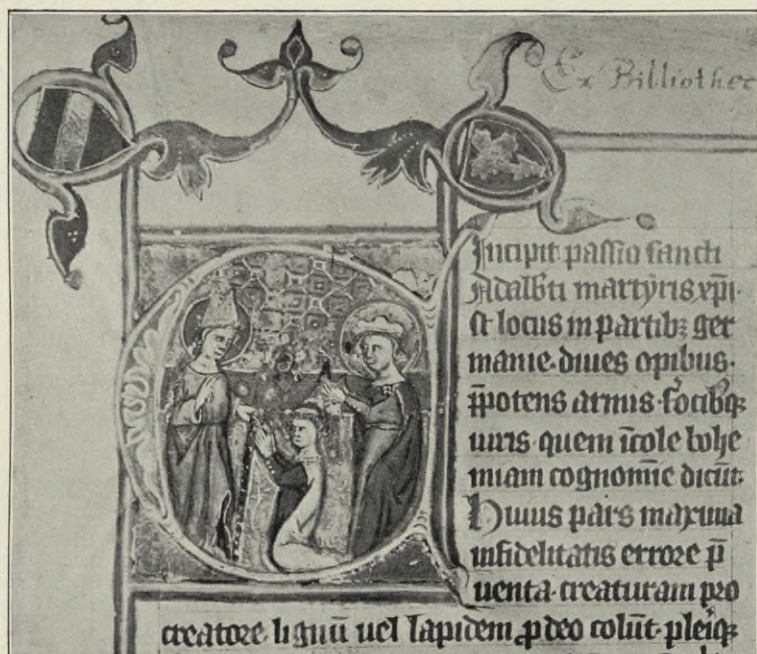 Ex Bibliothec
Incipit passio sancti
Adalb̄ti martyris xp̄i·
st locus in partib; ger
manie· diues opibus·
p̄potens armis· f̄ocib;q;
uiris· quem īcole bohe
miam cognomīe dicūt·
Huius pars maxima
infidelitatis errore p̄
uenta· creaturam pro
creatore· lignū uel lapidem ꝓ deo colūt· pleiq;